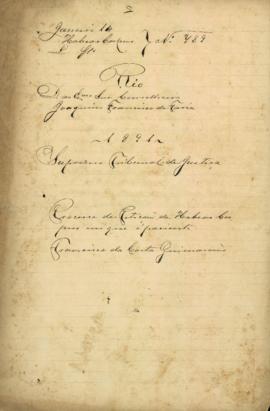 Janeiro 14
Habeas Corpus Nº 489
Rio
Conselheiro
Joaquim Francisco de Faria
1891
Supremo Tribunal de Justiça
Processo de Petição de Habeas Cor
pus em que é paciente
Francisco da Costa Guimarães